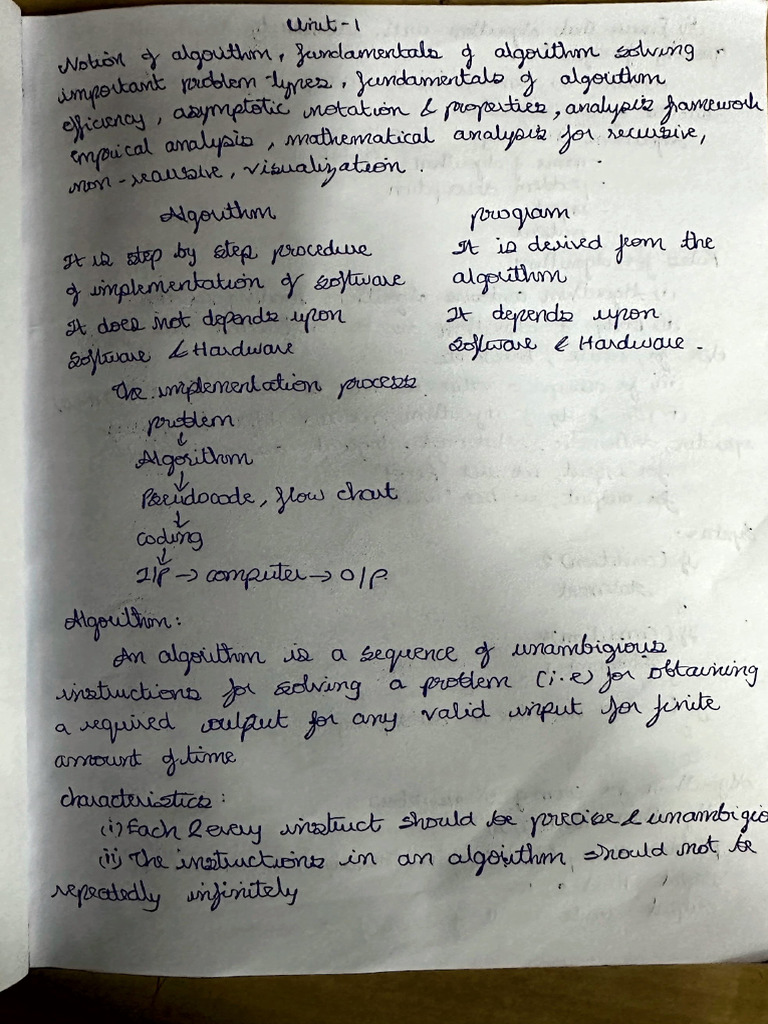 Unit-1
Notion of algorithm, fundamentals of algorithm solving
important problem types, fundamentals of algorithm
efficiency, asymptotic notation & properties, analysis framework
empirical analysis, mathematical analysis for recursive,
non-recursive, visualization.
Algorithm program
It is step by step procedure It is derived from the
of implementation of software algorithm
It does not depends upon It depends upon
software & Hardware software & Hardware.
The implementation process
problem
↓
Algorithm
↓
Pseudocode, flow chart
↓
coding
↓
I/P → computer → O/P.
Algorithm:
An algorithm is a sequence of unambigious
instructions for solving a problem (i.e) for obtaining
a required output for any valid input for finite
amount of time
characteristics:
(i) Each & every instruct should be precise & unambigio
(ii) The instructions in an algorithm should not be
repeatedly infinitely